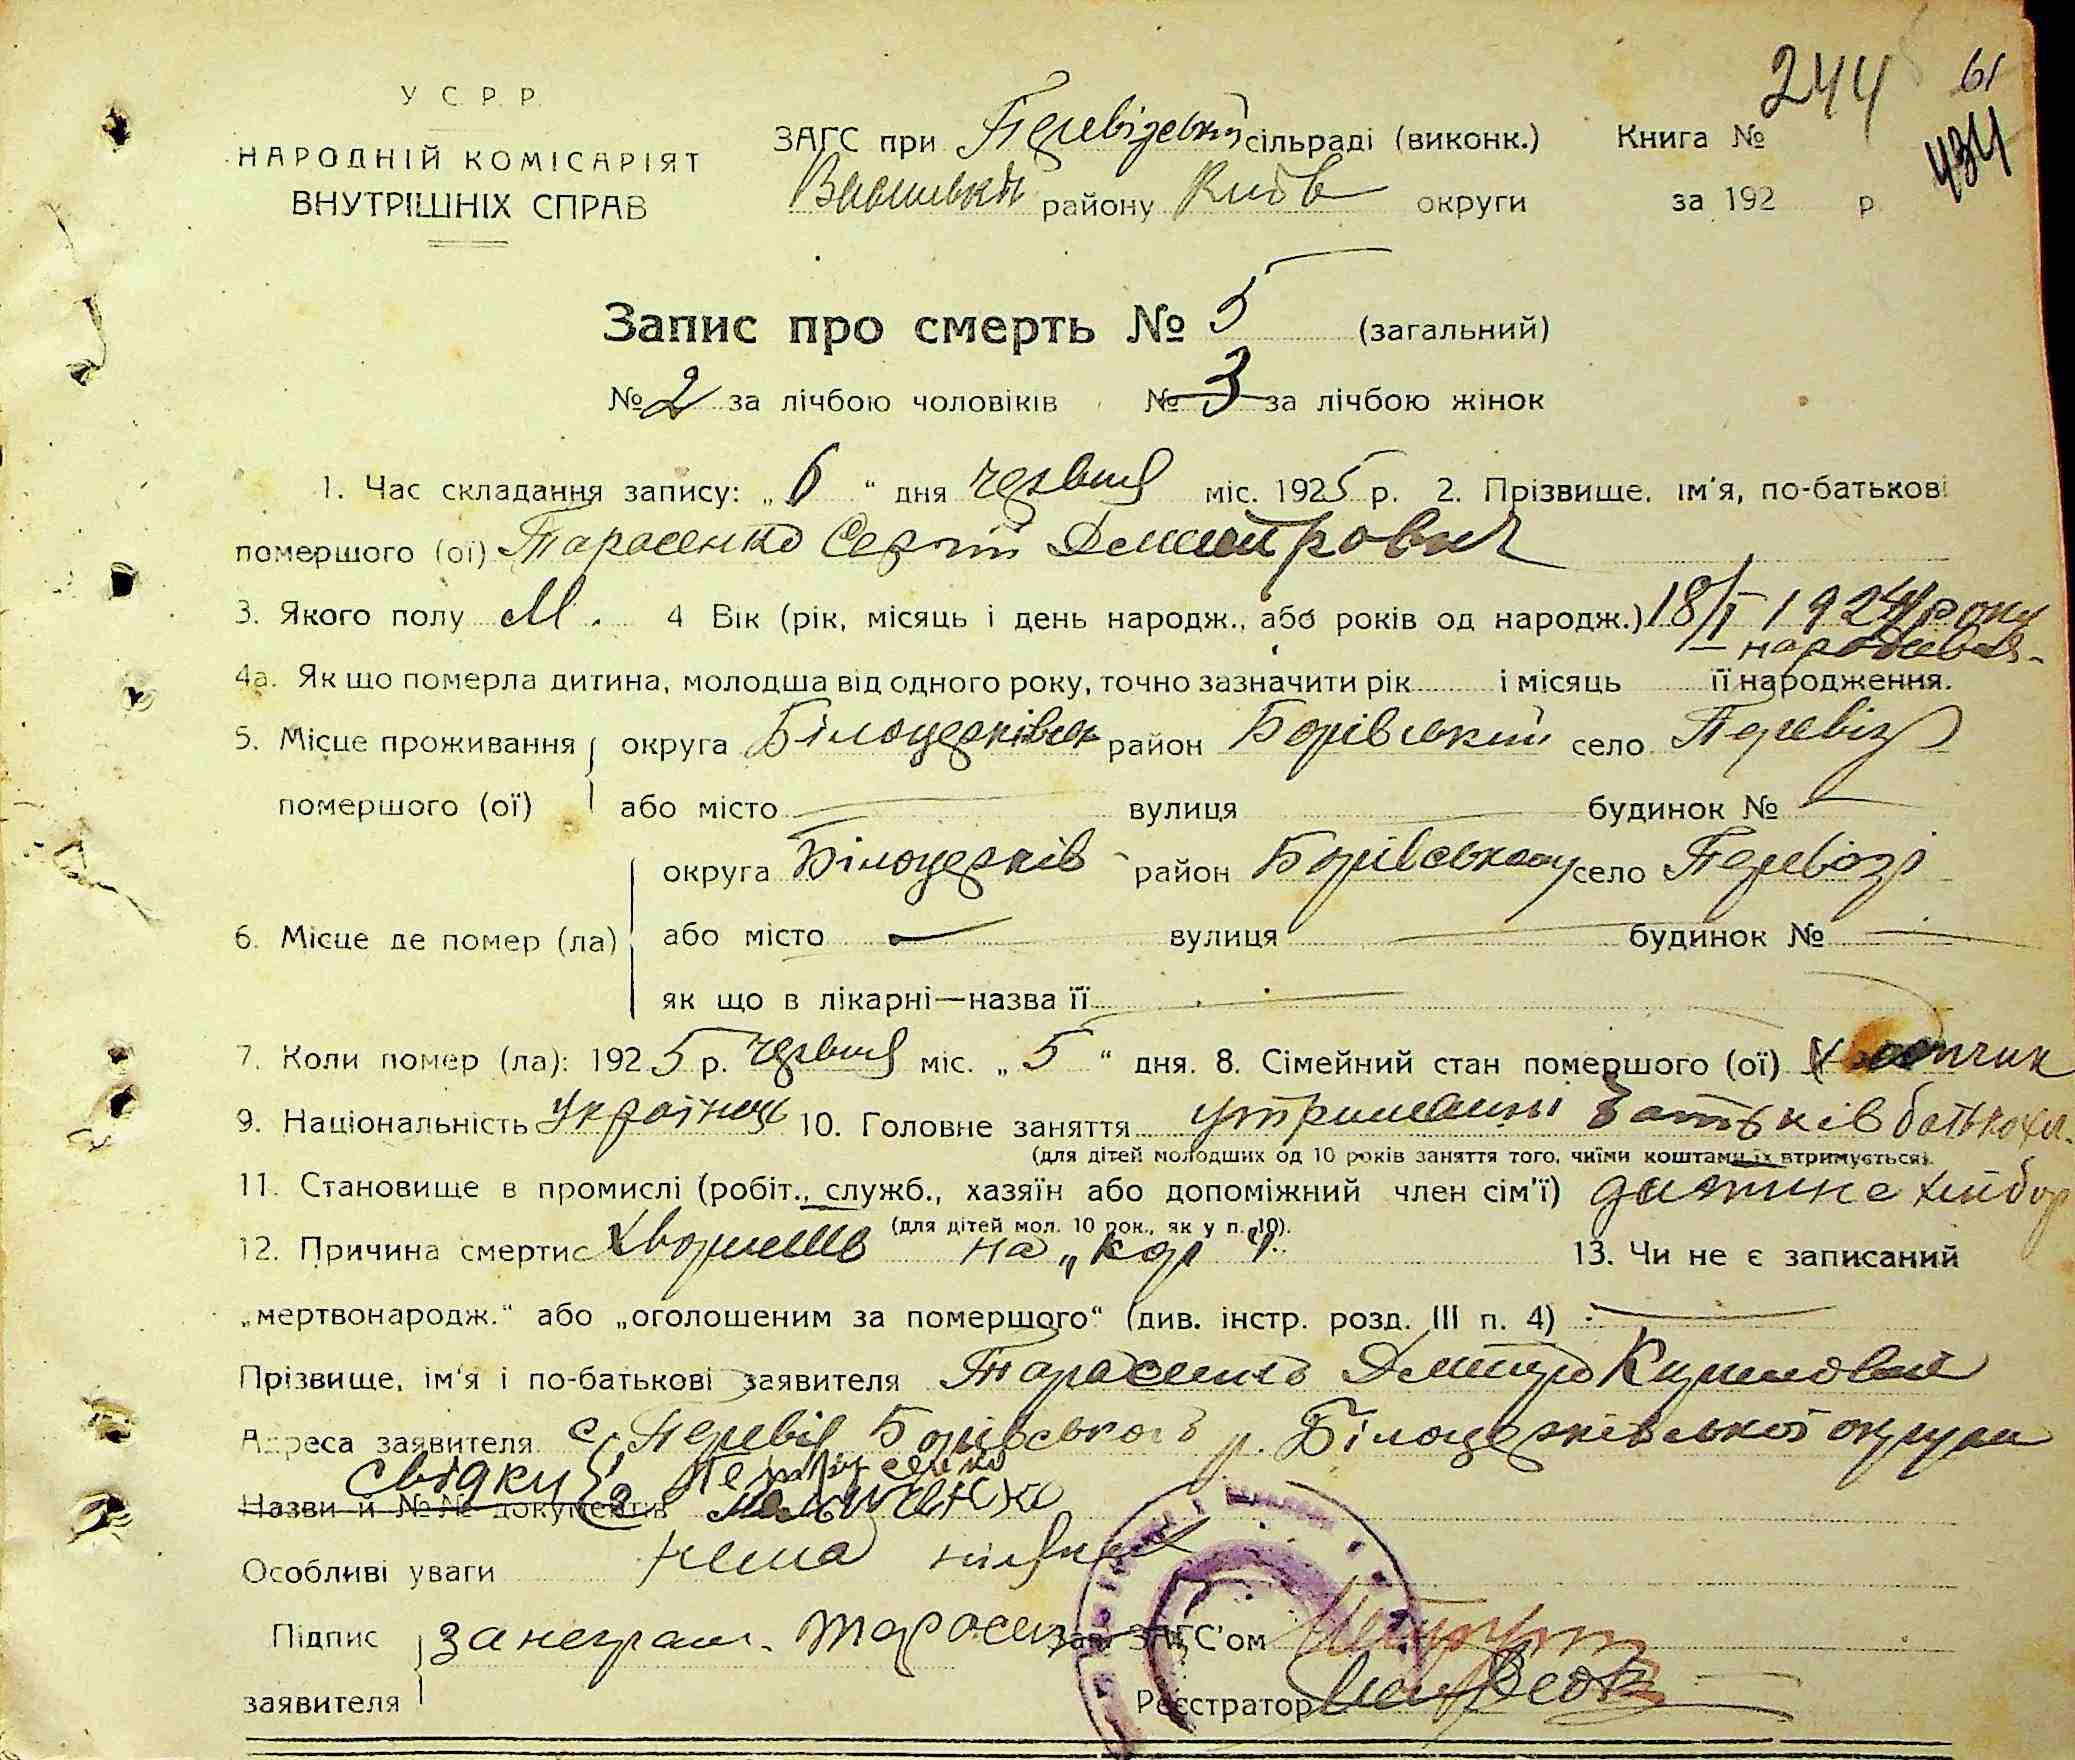 244 61
434
У С. Р. Р.
НАРОДНІЙ КОМІСАРІЯТ
ВНУТРІШНІХ СПРАВ
ЗАГС при Перевізській сільраді (виконк.) Книга №
району Київ округи за 192 р.
Запис про смерть № 5 (загальний)
№ 2 за лічбою чоловіків № 3 за лічбою жінок
1. Час складання запису: „6“ дня червня міс. 1925 р. 2. Прізвище, ім'я, по-батькові
помершого (ої) Тарасенко Сергій Дмитрович
3. Якого полу М. 4 Вік (рік, місяць і день народж., або років од народж.) 18/I 1924 року
народився
4а. Як що померла дитина, молодша від одного року, точно зазначити рік і місяць її народження.
5. Місце проживання округа Білоцерківськ район Борівський село Перевіз
помершого (ої) або місто вулиця будинок №
округа Білоцерків район Борівському село Перевозі
6. Місце де помер (ла) або місто вулиця будинок №
як що в лікарні—назва її
7. Коли помер (ла): 1925 р. червня міс. „5“ дня. 8. Сімейний стан помершого (ої) хлопчик
9. Національність Українець 10. Головне заняття утриманні батьків
(для дітей молодших од 10 років заняття того, чиїми коштами їх втримується).
11. Становище в промислі (робіт., служб., хазяїн або допоміжний член сім'ї) дитина хлібор
(для дітей мол. 10 рок., як у п. 10).
12. Причина смерти с хворішв на „кор“ 13. Чи не є записаний
„мертвонародж.“ або „оголошеним за померщого“ (див. інстр. розд. III п. 4)
Прізвище, ім'я і по-батькові заявителя Тарасенко Дмитро Кирилович
Адреса заявителя с. Перевіз Борівського р. Білоцерківської округи
свідки 1
Назви й №№ документів 2
Особливі уваги нема ніяких
Підпис за неграм. Тарасен Зав. ЗАГС'ом
заявителя Реєстратор